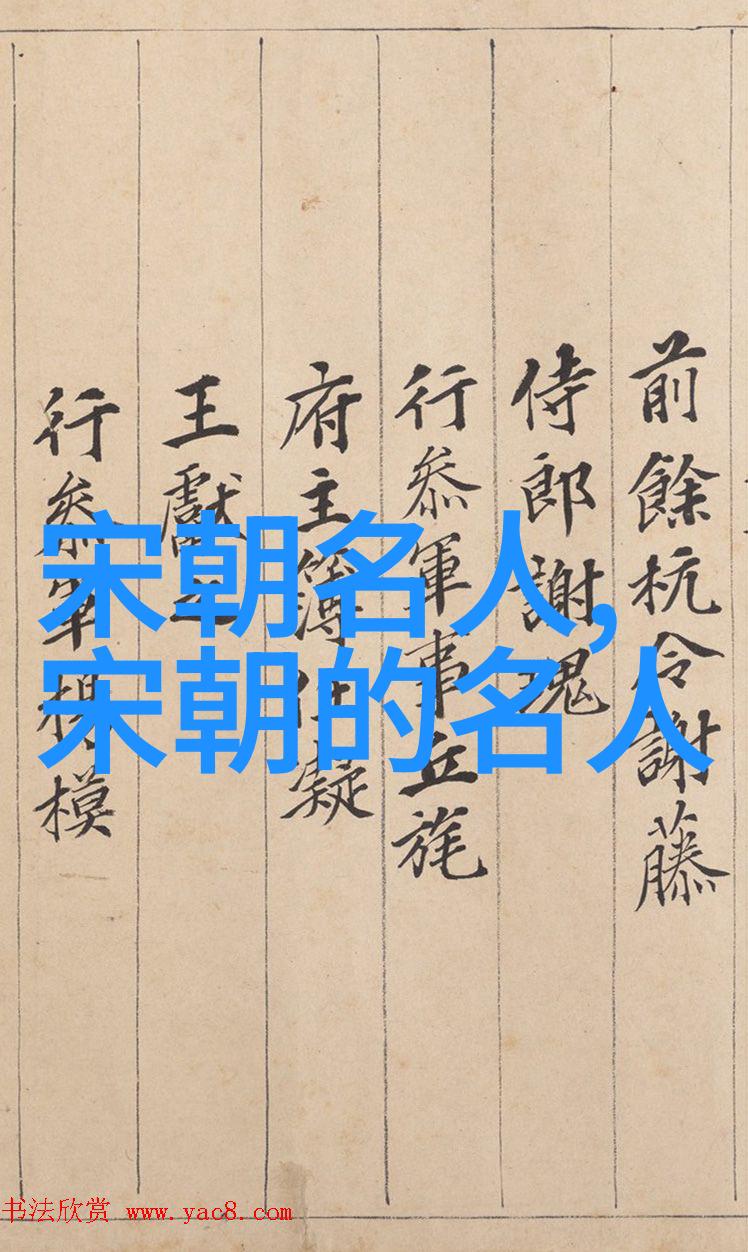 前餘杭令謝藤
侍郎謝瑰
行叅軍事丘旄
府主簿任凝
王獻之
行叅軍楊模
宋朝名人,
宋朝的名人
书法欣赏 www.yac8.com